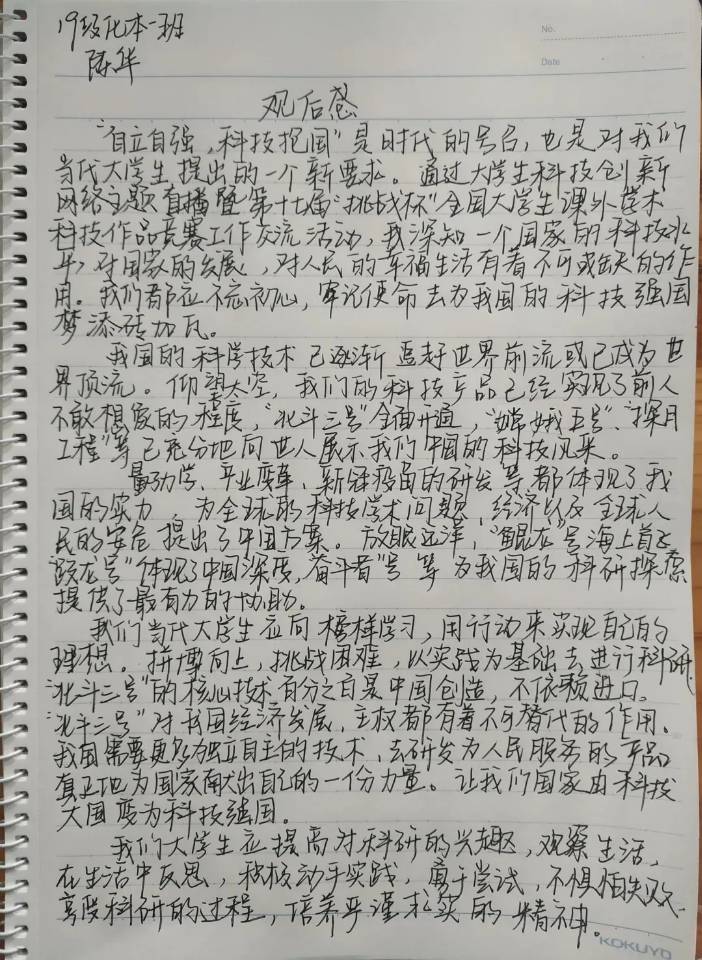 19级化本一班
陈华
No.
Date
观后感
"自立自强,科技挽国"是时代的号召,也是对我们
当代大学生提出的一个新要求。通过大学生科技创新
网络主题直播暨第十七届"挑战杯"全国大学生课外学术
科技作品竞赛工作交流活动,我深知一个国家的科技水
平,对国家的发展,对人民的幸福生活有着不可或缺的作
用。我们都应不忘初心,牢记使命去为我国的科技强国
梦添砖加瓦。
我国的科学技术已逐渐追赶世界前流或已成为世
界顶流。仰望太空,我们的科技产品已经实现了前人
不敢想象的程度,"北斗三号"全面开通,"嫦娥五号"、"探月
工程"等已充分地向世人展示我们中国的科技风采。
量子力学、平业变革、新冠疫苗的研发等都体现了我
国的实力,为全球的科技学术问题,经济以及全球人
民的安危提出了中国方案。放眼远洋,"鲲龙"号海上首飞
"蛟龙号"体现了中国深度,"奋斗者"号等为我国的科研探索
提供了最有力的协助。
我们当代大学生应向榜样学习,用行动来实现自己的
理想。拼搏向上,挑战困难,以实践为基础去进行科研,
"北斗三号"的核心技术百分之百是中国创造,不依赖进口。
"北斗三号"对我国经济发展,主权都有着不可替代的作用。
我国需要更多为独立自主的技术,去研发为人民服务的产品
真正地为国家献出自己的一份力量。让我们国家由科技
大国变为科技强国。
我们大学生应提高对科研的兴趣,观察生活,
在生活中反思,积极动手实践,勇于尝试,不惧怕失败,
享受科研的过程,培养严谨求实的精神。
KOKUYO